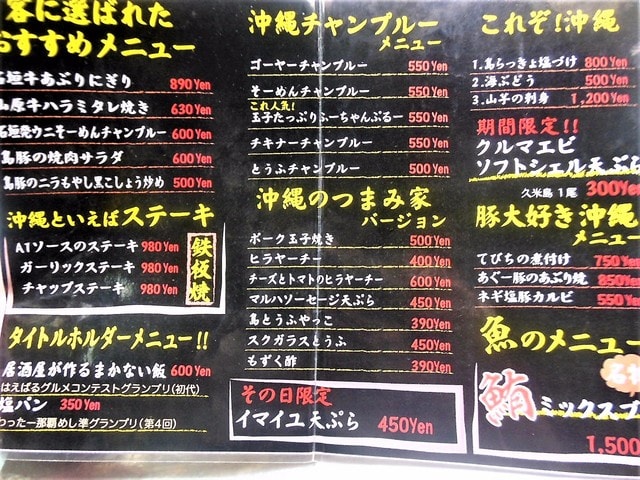 客に選ばれた
おすすめメニュー
石垣牛あぶりにぎり 890Yen
山原牛ハラミタレ焼き 630Yen
石垣発ウニそーめんチャンプルー 600Yen
島豚の焼肉サラダ 600Yen
島豚のニラもやし黒こしょう炒め 500Yen
沖縄といえばステーキ
A1ソースのステーキ 980Yen
ガーリックステーキ 980Yen
チャップステーキ 980Yen
鉄板焼
タイトルホルダーメニュー!!
居酒屋が作るまかない飯 600Yen
はえばるグルメコンテストグランプリ(初代)
塩パン 350Yen
わったー那覇めし準グランプリ(第4回)
沖縄チャンプルー
メニュー
ゴーヤーチャンプルー 550Yen
そーめんチャンプルー 550Yen
これ人気!
玉子たっぷりふーちゃんぷるー 550Yen
チキナーチャンプルー 550Yen
とうふチャンプルー 550Yen
沖縄のつまみ家
バージョン
ポーク玉子焼き 500Yen
ヒラヤーチー 400Yen
チーズとトマトのヒラヤーチー 600Yen
マルハソーセージ天ぷら 450Yen
島とうふやっこ 390Yen
スクガラスとうふ 450Yen
もずく酢 390Yen
その日限定
イマイユ天ぷら 450Yen
これぞ!沖縄
1.島らっきょ塩づけ 800Yen
2.海ぶどう 500Yen
3.山芋の刺身 1,200Yen
期間限定!!
クルマエビ
ソフトシェル天ぷら
久米島 1尾 300Yen
豚大好き 沖縄
メニュー
てびちの煮付け 750Yen
あぐー豚のあぶり焼 850Yen
ネギ塩豚カルビ 550Yen
魚のメニュー
鮪ミックス
1,500